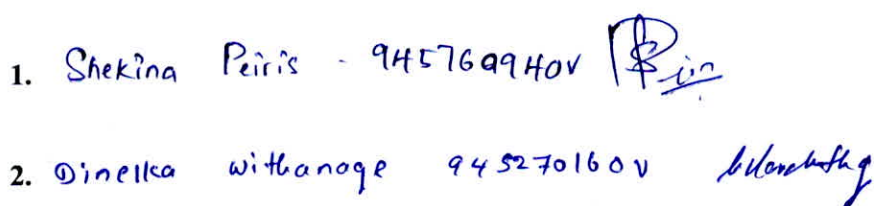 1. Shekina Peiris - 945769940V
2. Dinelka withanage 945270160V